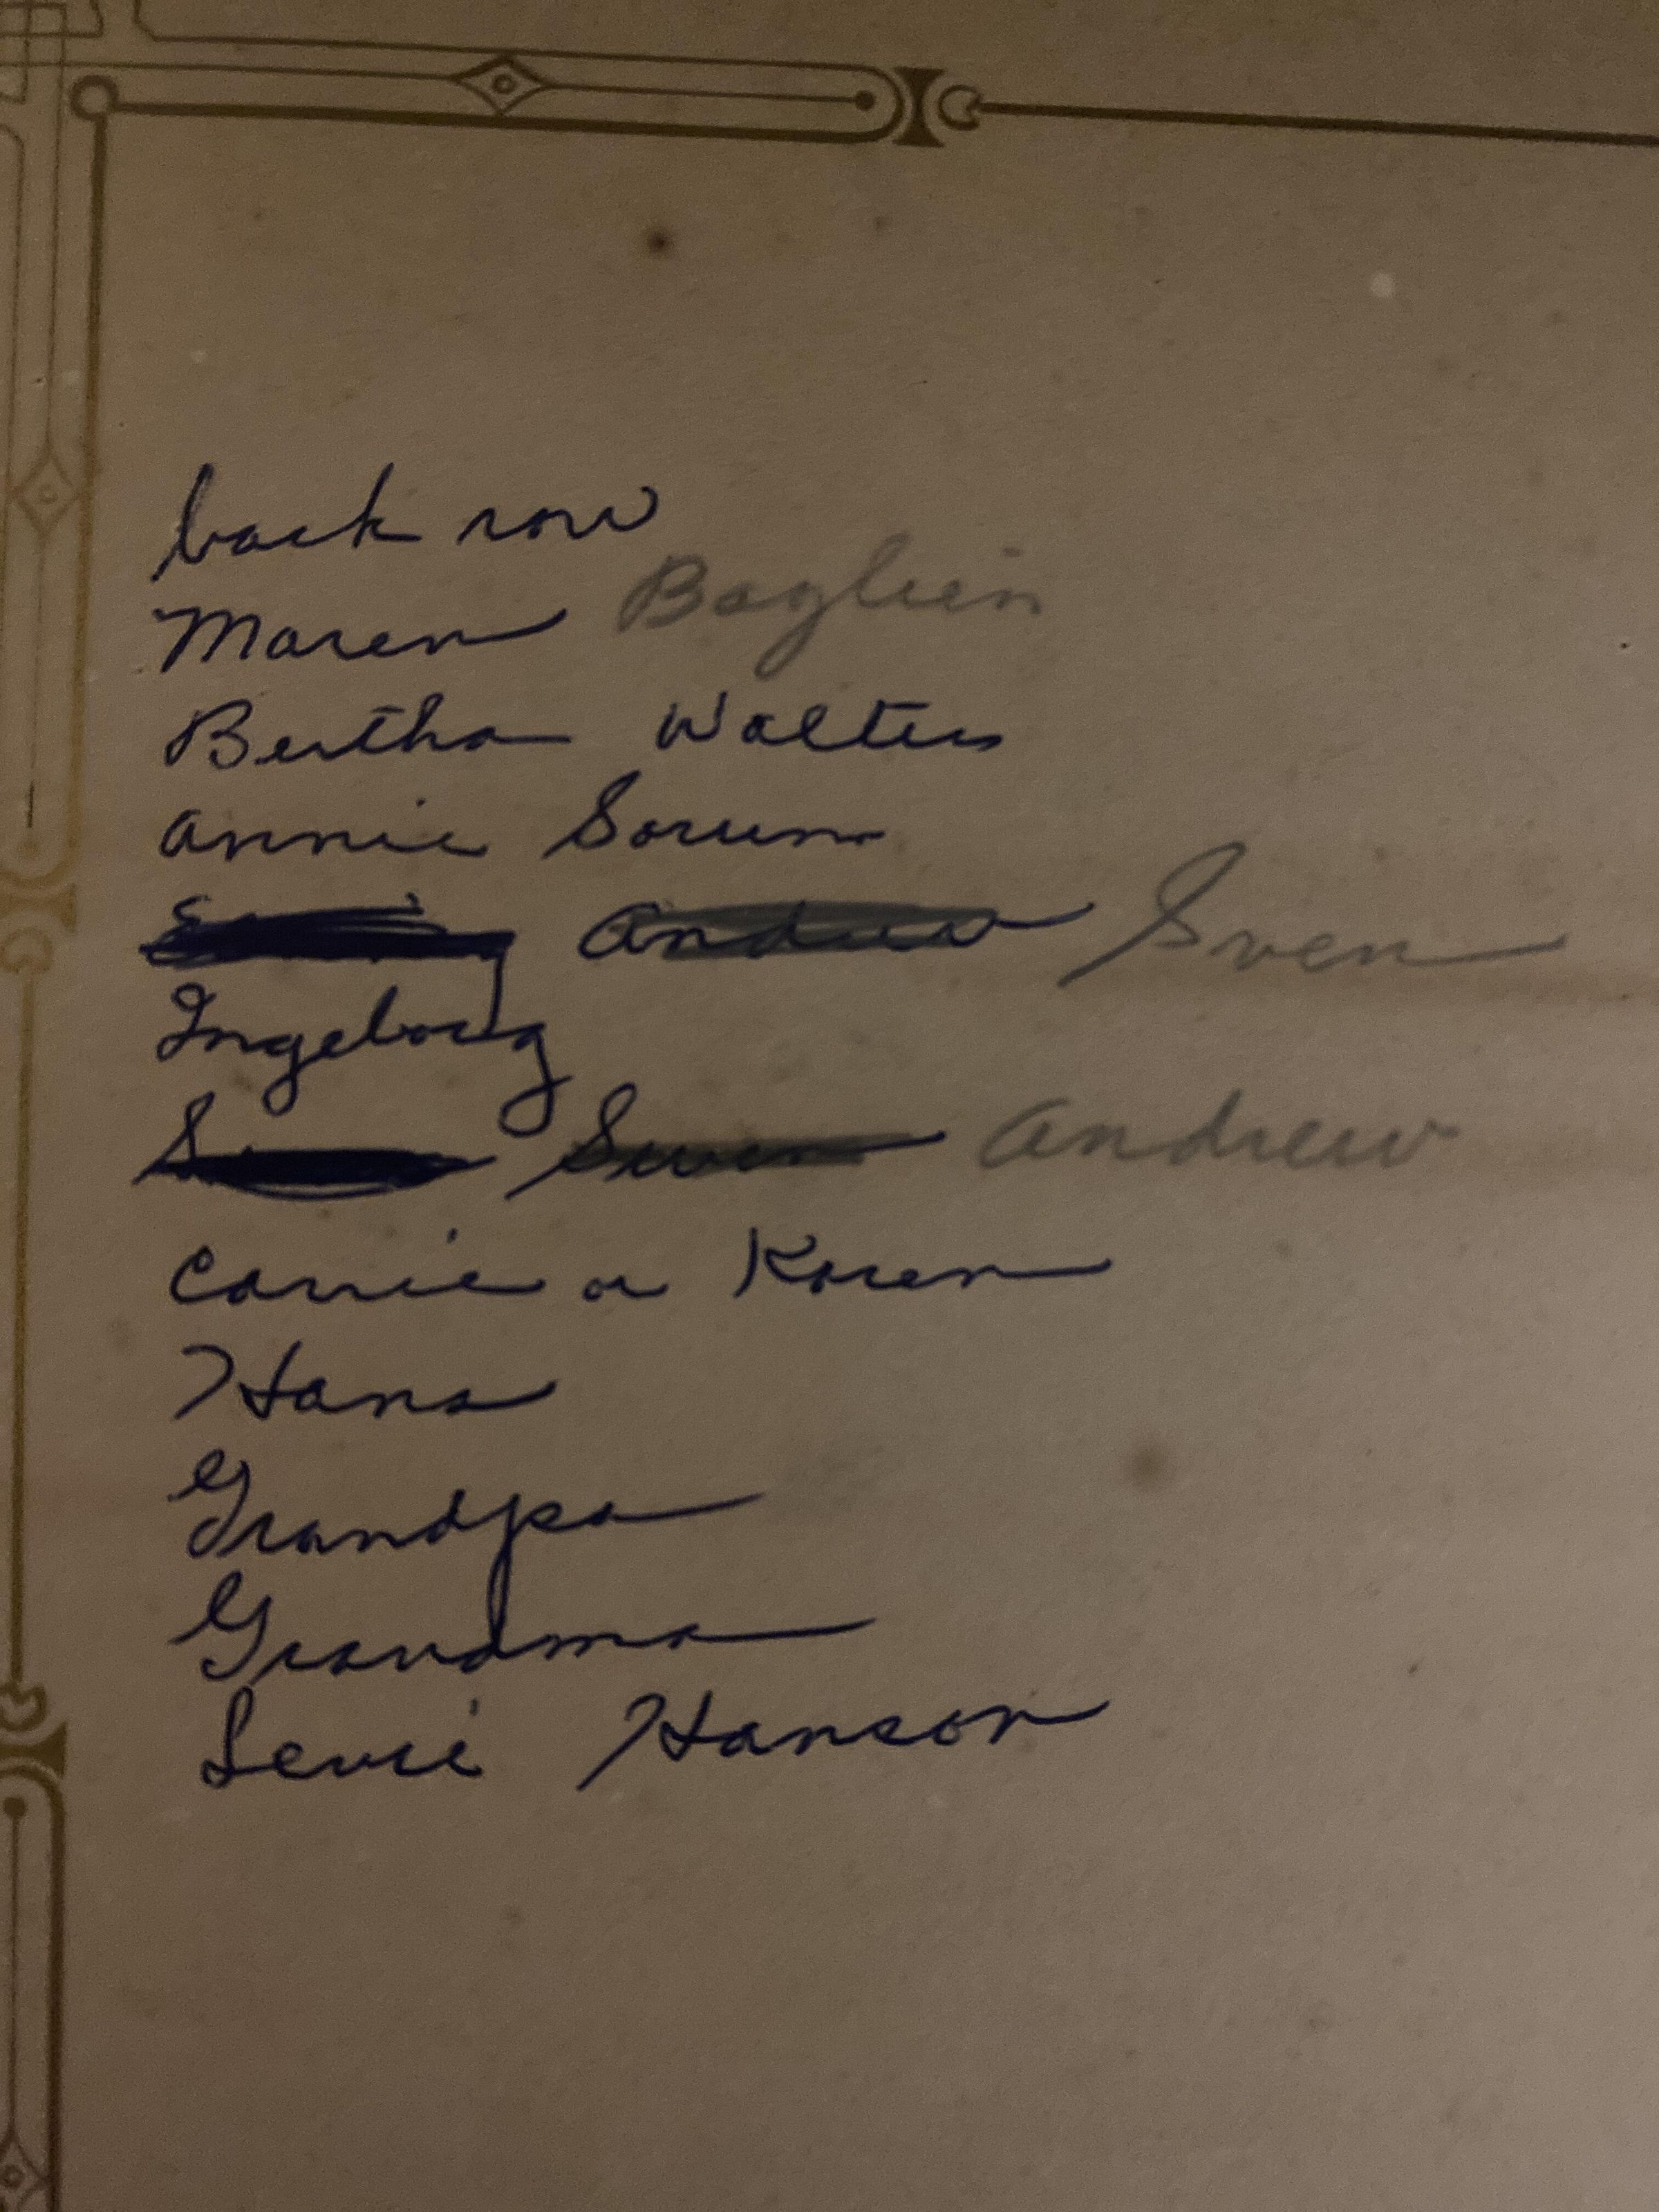 back row
Maren Baglien
Bertha Walters
Annie Sorum
Andrew Sven
Ingeborg
Sven Andrew
Carrie or Karen
Hans
Grandpa
Grandma
Hanson